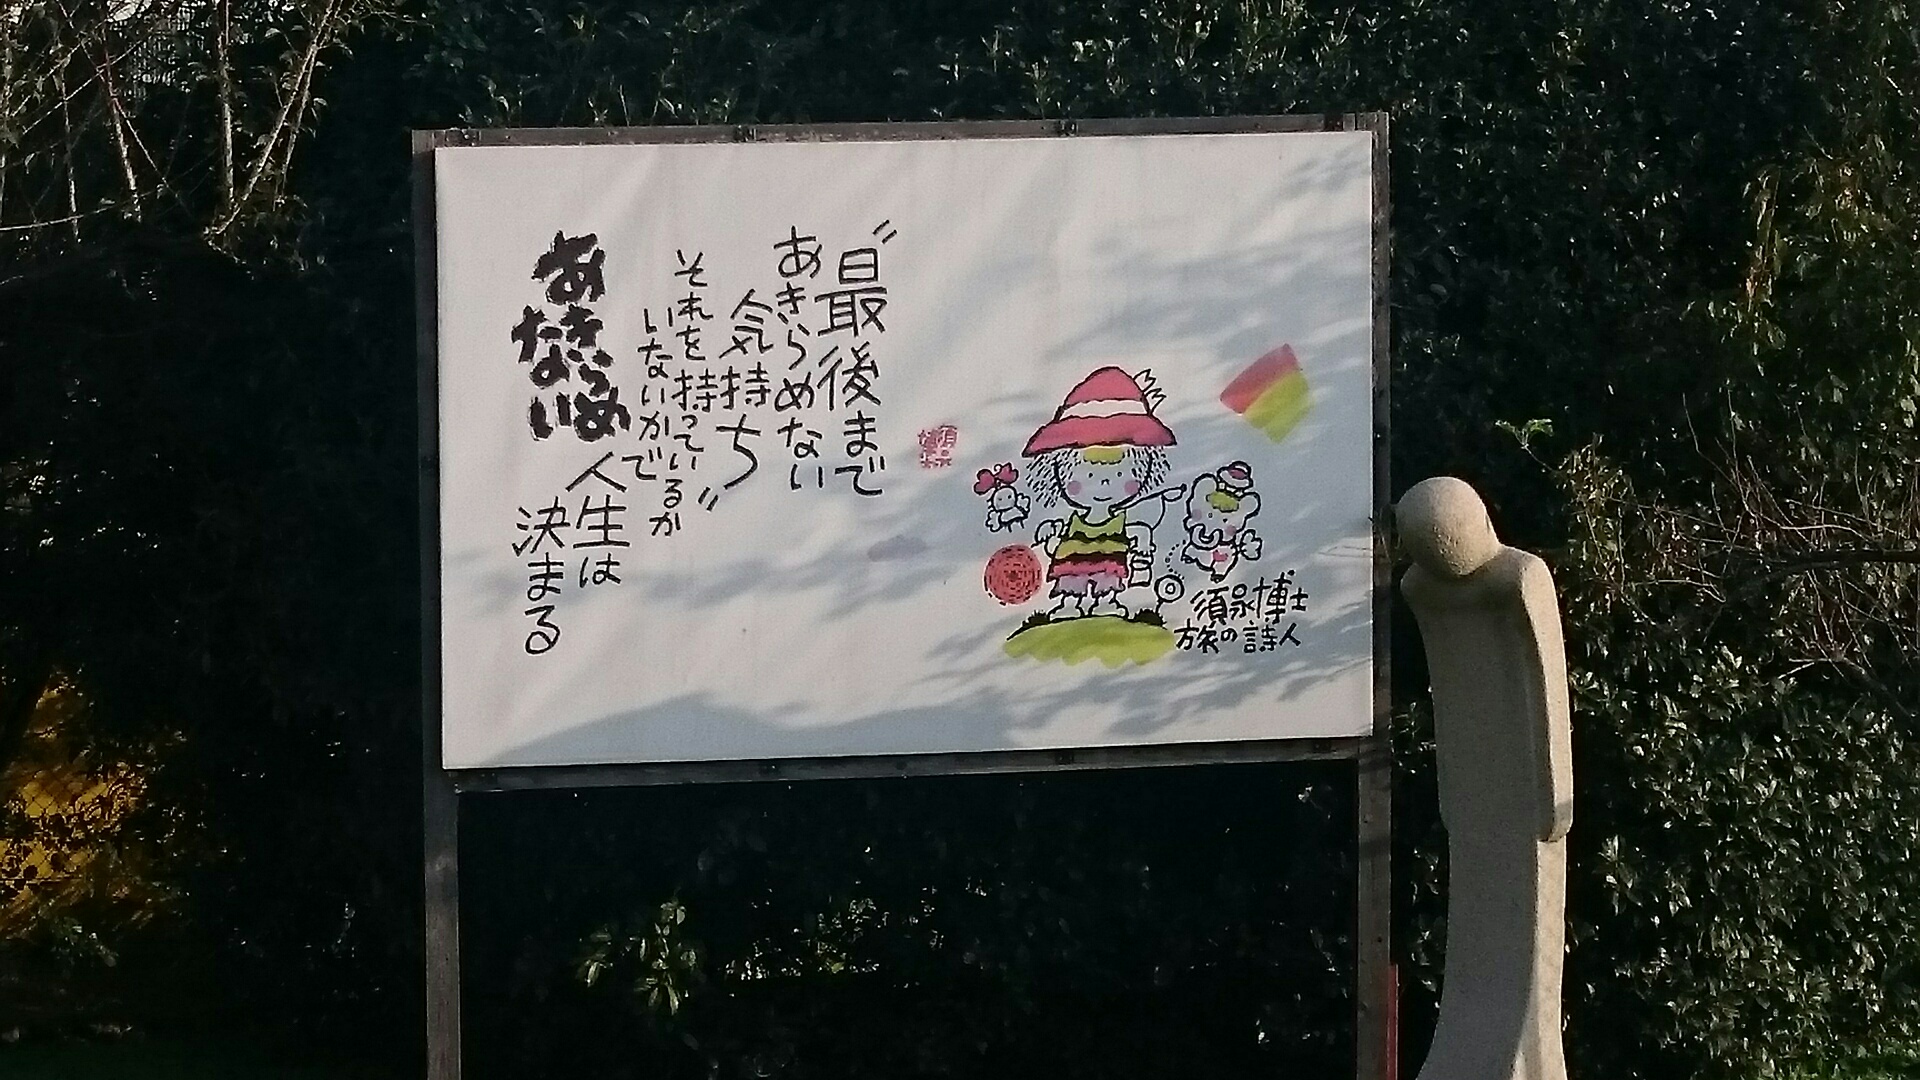 “最後まで
あきらめない
気持ち”
それを持っているか
いないかで
人生は
決まる
あきらめ
ない
須永博士
旅の詩人